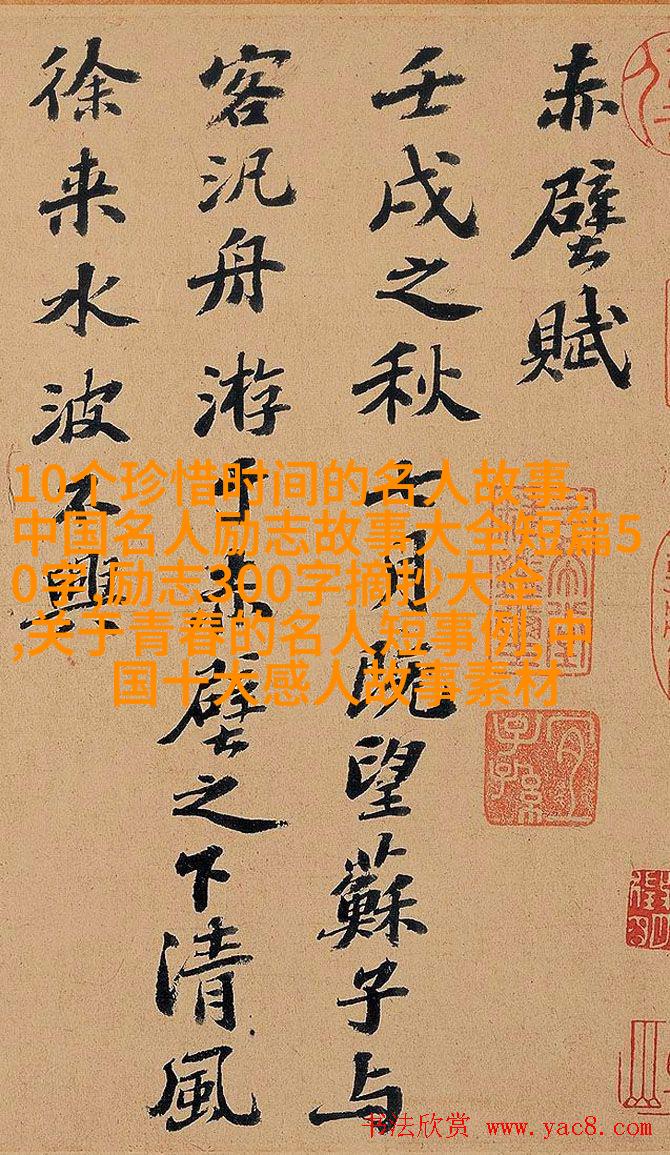 赤壁賦
壬戌之秋七月既望蘇子与
客汎舟游于赤壁之下清風
徐来水波不興
10个珍惜时间的名人故事,
中国名人励志故事大全短篇5
0字,励志300字摘抄大全
,关于青春的名人短事例,中
国十大感人故事素材
书法欣赏 www.yac8.com